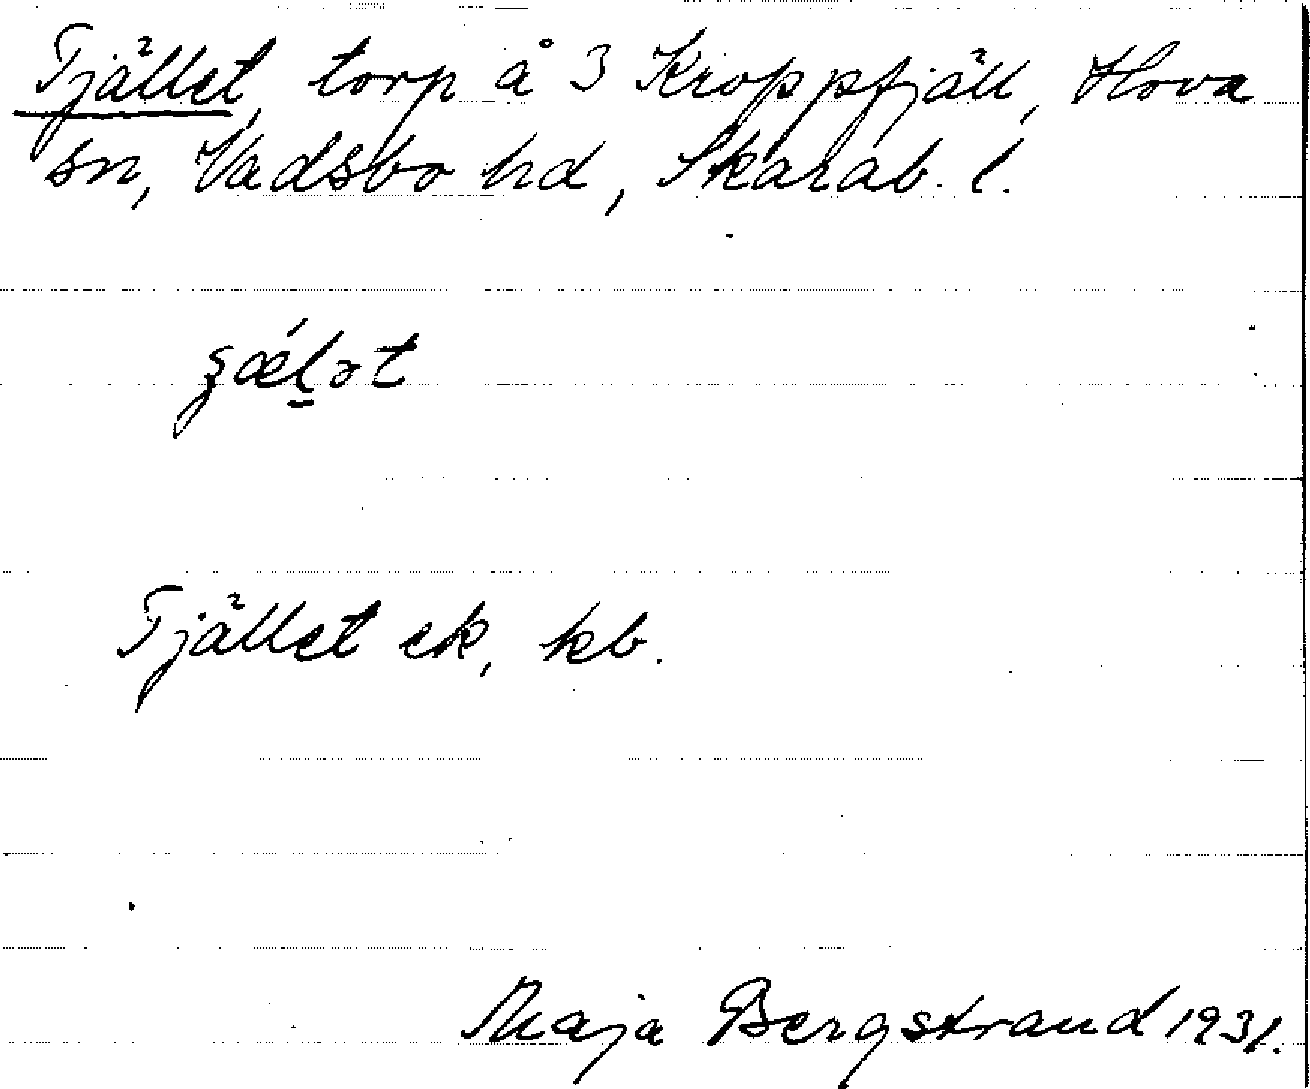 Tjället, torp å 3 Kroppfjäll, Hova
sn, Vadsbo hd, Skarab. l.
Tjället ek, kb.
Maja Bergstrand 1931.